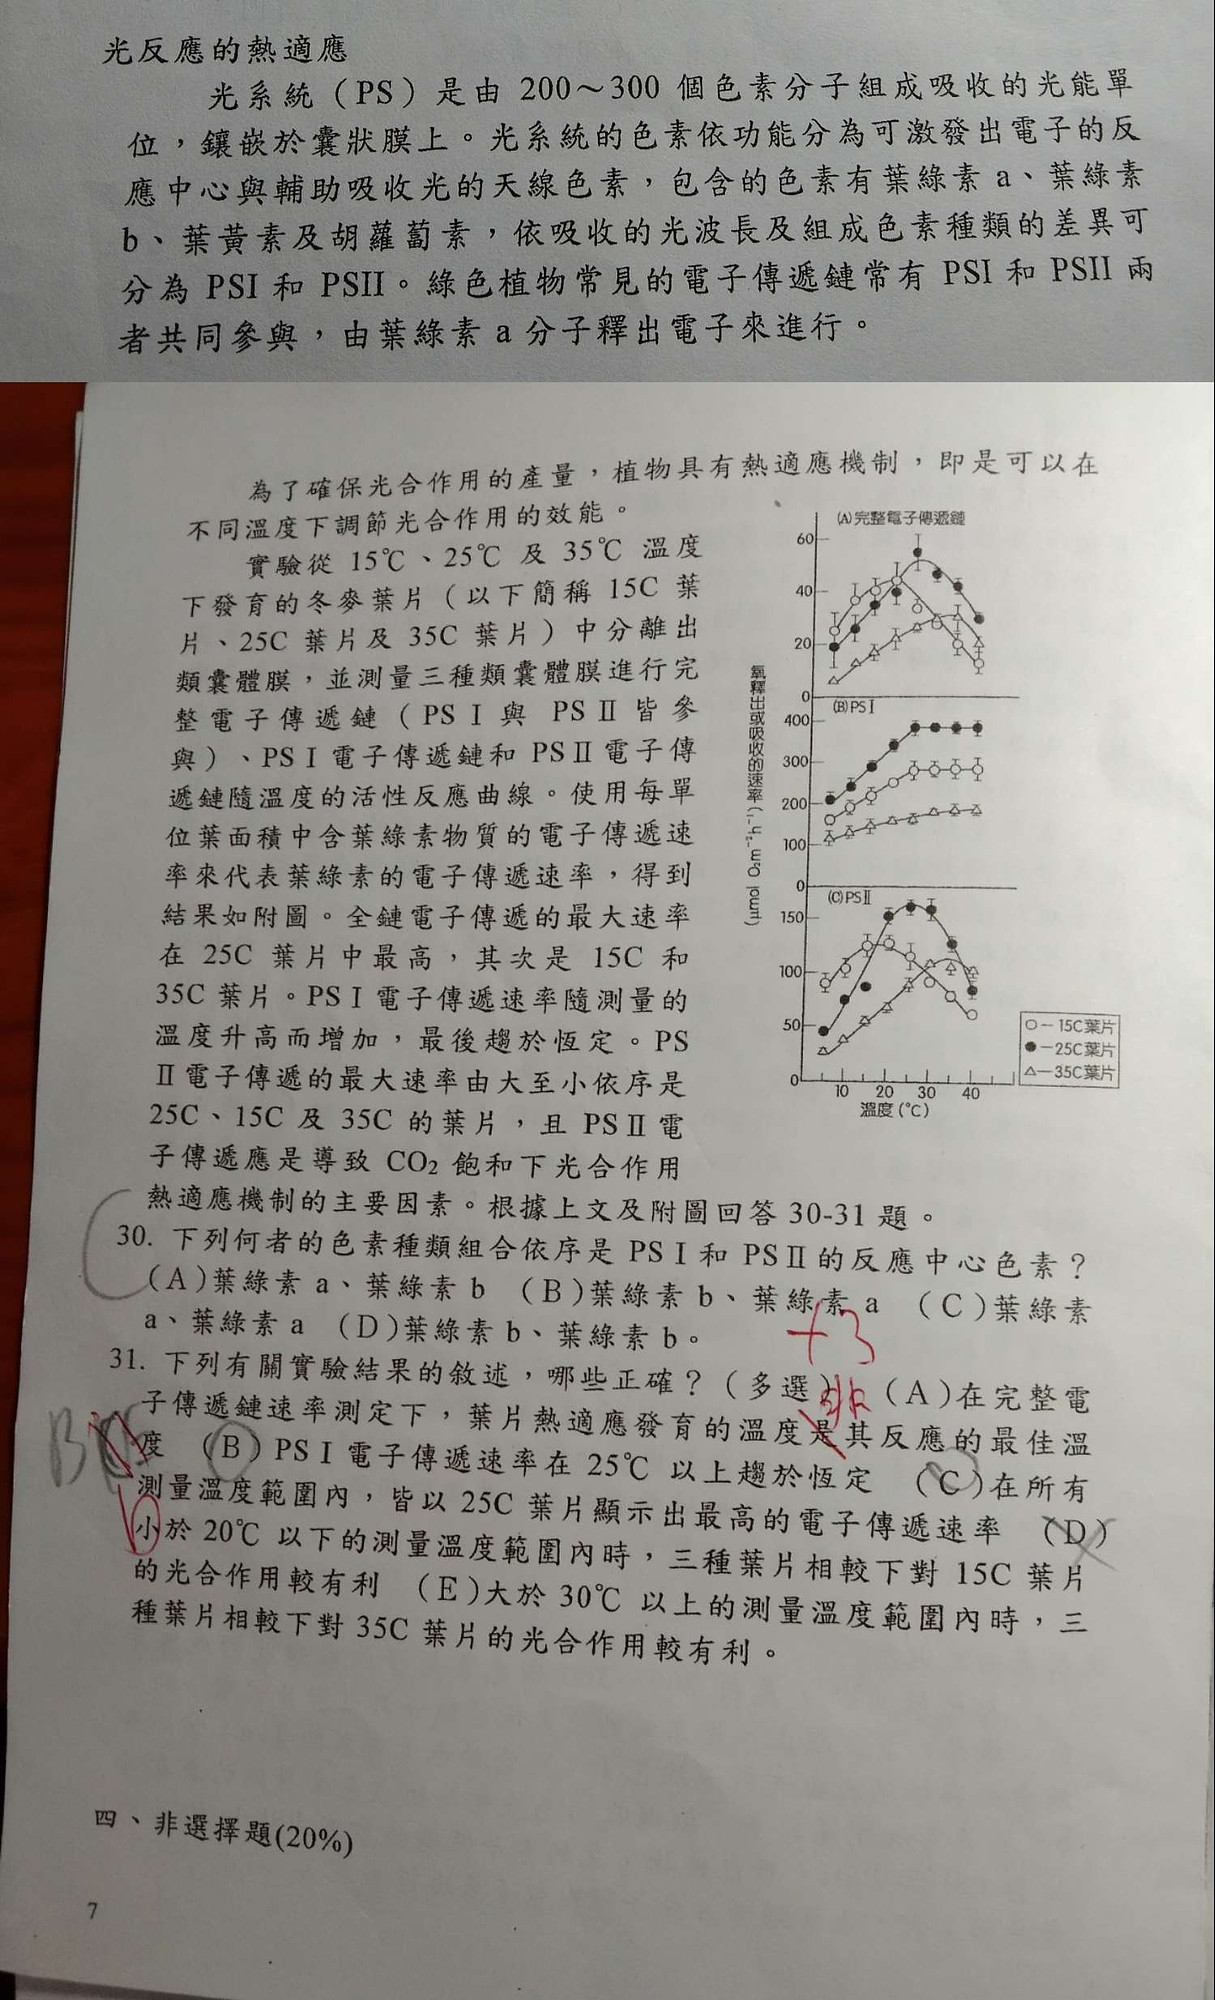 光反應的熱適應
光系統（PS）是由 200～300 個色素分子組成吸收的光能單
位，鑲嵌於囊狀膜上。光系統的色素依功能分為可激發出電子的反
應中心與輔助吸收光的天線色素，包含的色素有葉綠素 a、葉綠素
b、葉黃素及胡蘿蔔素，依吸收的光波長及組成色素種類的差異可
分為 PSI 和 PSII。綠色植物常見的電子傳遞鏈常有 PSI 和 PSII 兩
者共同參與，由葉綠素 a 分子釋出電子來進行。
為了確保光合作用的產量，植物具有熱適應機制，即是可以在
不同溫度下調節光合作用的效能。
實驗從 15℃、25℃ 及 35℃ 溫度
下發育的冬麥葉片（以下簡稱 15C 葉
片、25C 葉片及 35C 葉片）中分離出
類囊體膜，並測量三種類囊體膜進行完
整電子傳遞鏈（PSⅠ與 PSⅡ皆參
與）、PSⅠ電子傳遞鏈和 PSⅡ電子傳
遞鏈隨溫度的活性反應曲線。使用每單
位葉面積中含葉綠素物質的電子傳遞速
率來代表葉綠素的電子傳遞速率，得到
結果如附圖。全鏈電子傳遞的最大速率
在 25C 葉片中最高，其次是 15C 和
35C 葉片。PSⅠ電子傳遞速率隨測量的
溫度升高而增加，最後趨於恆定。PS
Ⅱ電子傳遞的最大速率由大至小依序是
25C、15C 及 35C 的葉片，且 PSⅡ電
子傳遞應是導致 CO₂ 飽和下光合作用
熱適應機制的主要因素。根據上文及附圖回答 30-31 題。
(A)完整電子傳遞鏈
60
40
20
0
(B)PSⅠ
400
300
200
100
0
(C)PSⅡ
150
100
50
0
10 20 30 40
溫度(℃)
氧釋出或吸收的速率(μmol O₂m⁻²h⁻¹)
○－15C葉片
●－25C葉片
△－35C葉片
30. 下列何者的色素種類組合依序是 PSⅠ和 PSⅡ的反應中心色素？
(A)葉綠素 a、葉綠素 b （B)葉綠素 b、葉綠素 a （C)葉綠素
a、葉綠素 a （D)葉綠素 b、葉綠素 b。
+3
31. 下列有關實驗結果的敘述，哪些正確？（多選） （A)在完整電
子傳遞鏈速率測定下，葉片熱適應發育的溫度是其反應的最佳溫
非
度 （B)PSⅠ電子傳遞速率在 25℃ 以上趨於恆定 （C)在所有
B
測量溫度範圍內，皆以 25C 葉片顯示出最高的電子傳遞速率 （D)
小於 20℃ 以下的測量溫度範圍內時，三種葉片相較下對 15C 葉片
的光合作用較有利 （E)大於 30℃ 以上的測量溫度範圍內時，三
種葉片相較下對 35C 葉片的光合作用較有利。
四、非選擇題(20%)
7